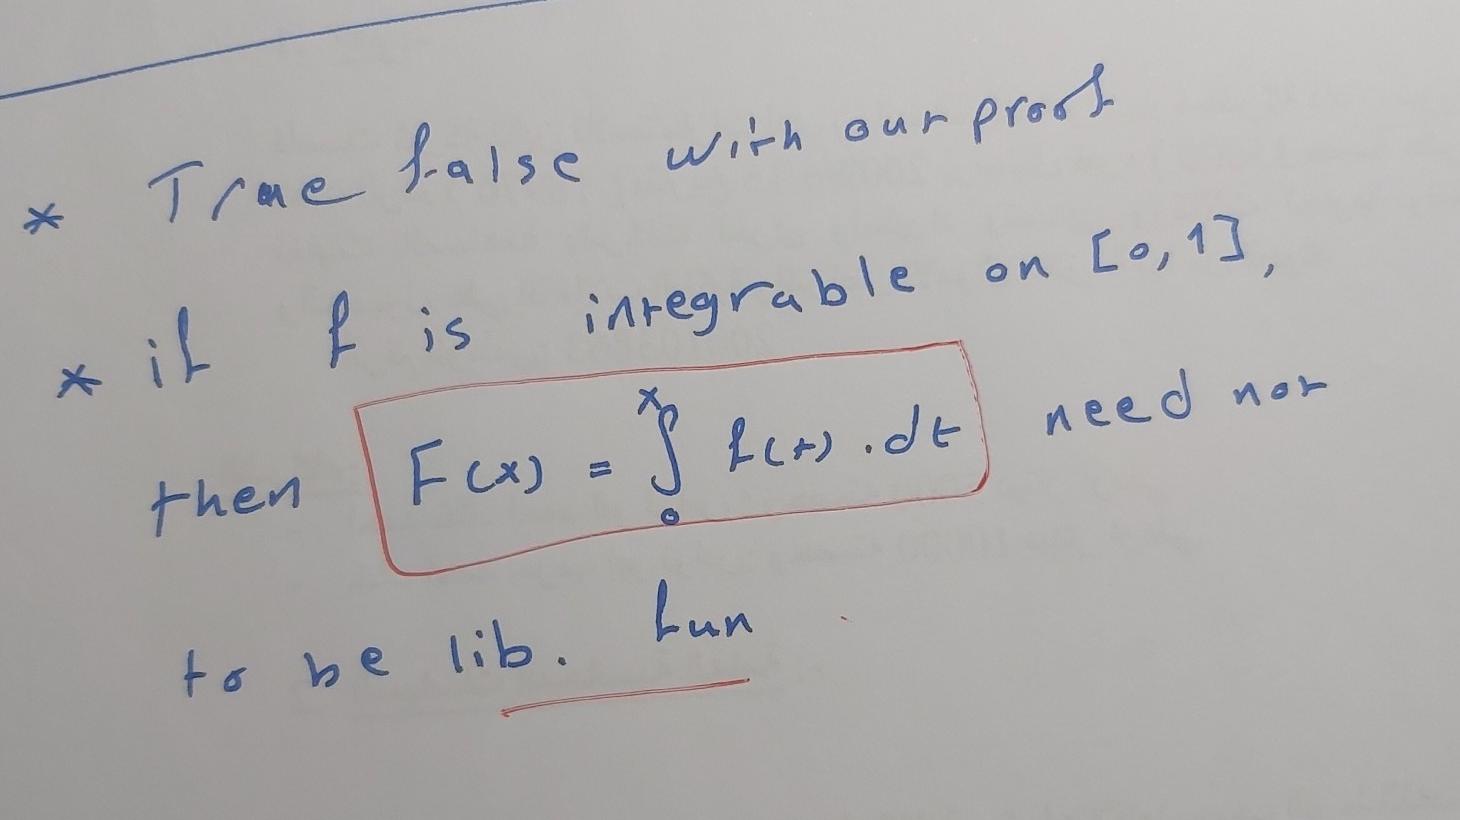 * True false with our proof
* if f is integrable on [0,1],
then F(x) = ∫₀ˣ f(t).dt need not
to be lib. fun